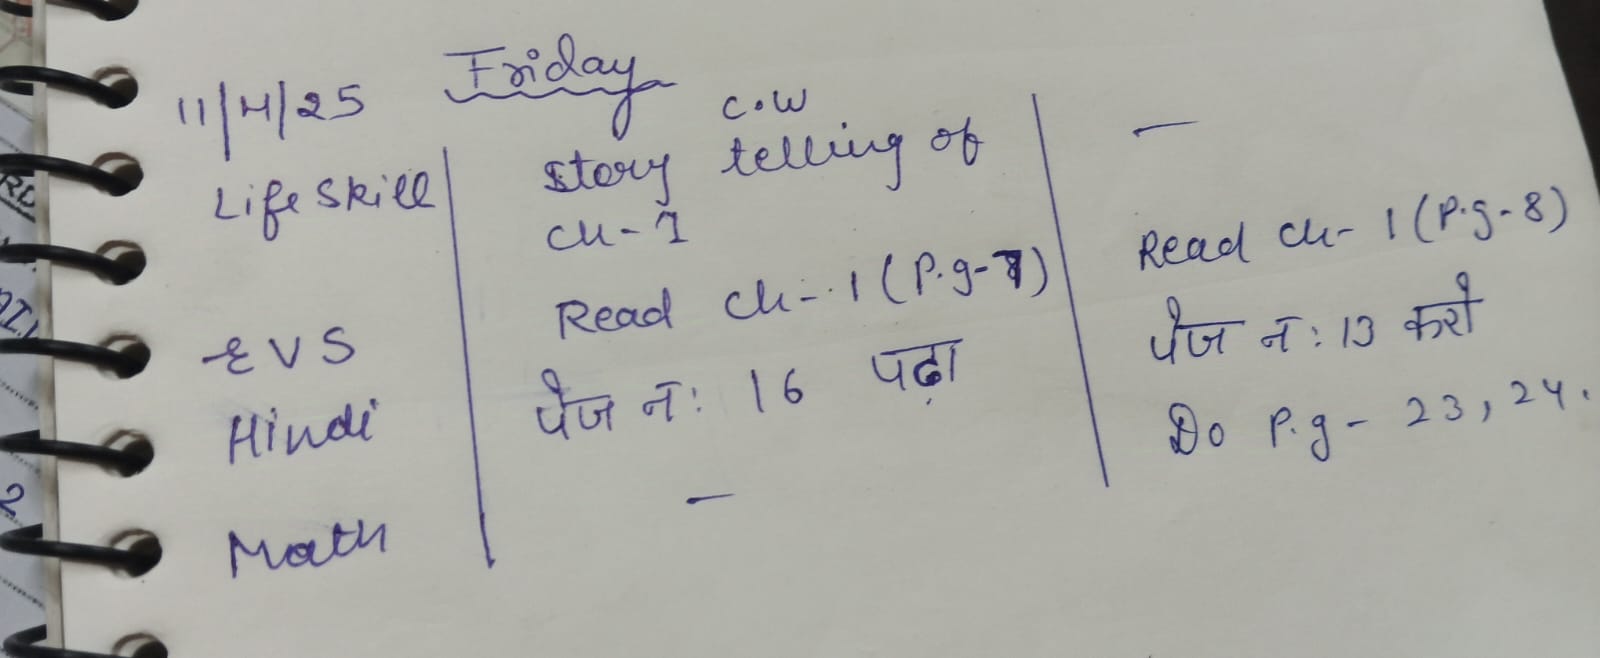 11/4/25 Friday
C.W
Life Skill story telling of —
CH-1
EVS Read Ch-1 (P.g-7) Read Ch-1 (P.g-8)
Hindi पेज नं: 16 पढ़ा पेज नं: 13 करो
Math — Do P.g- 23, 24.
2